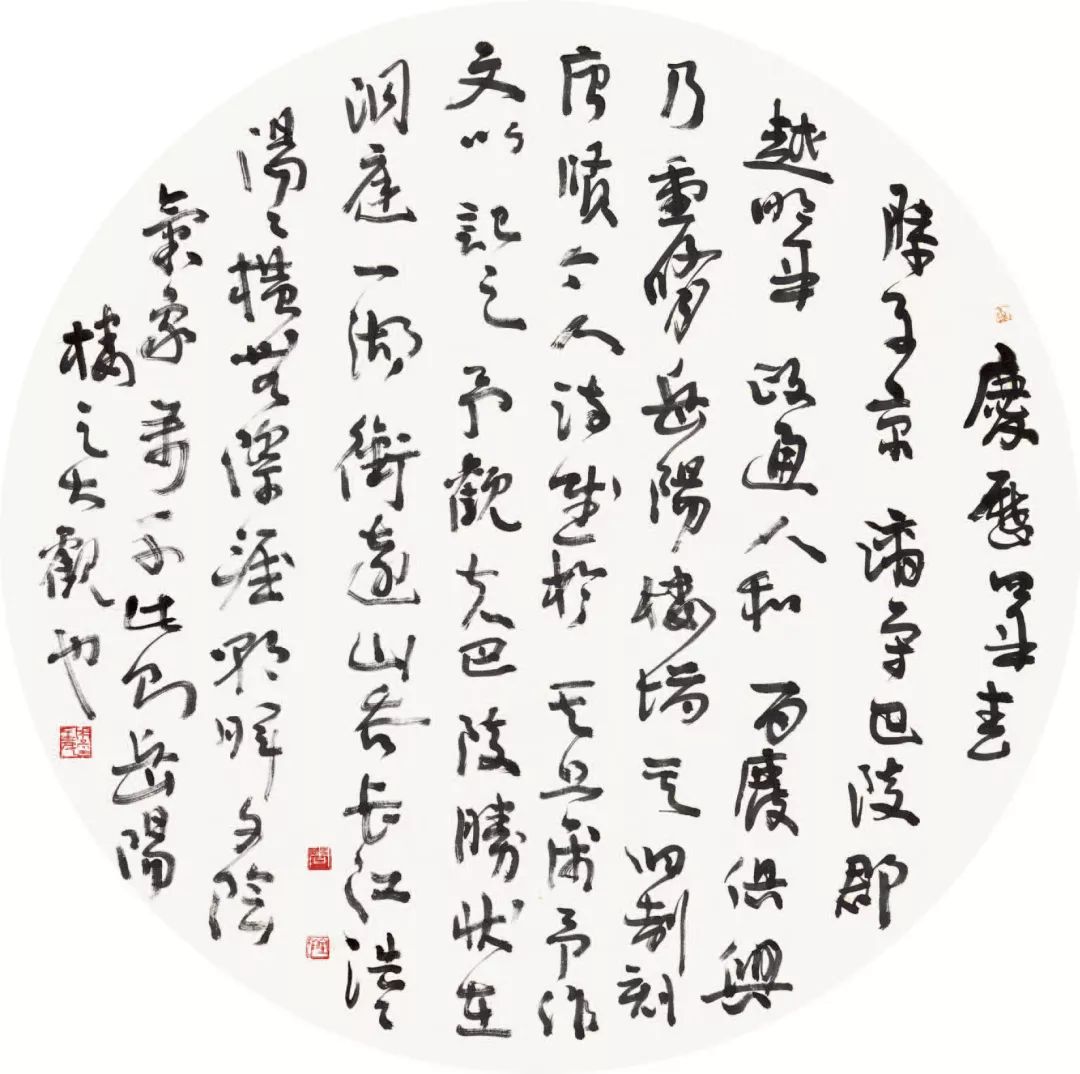 慶曆四年春
滕子京謫守巴陵郡
越明年政通人和百廢俱興
乃重脩岳陽樓增其旧制刻
唐賢今人詩賦於其上屬予作
文以記之予觀夫巴陵勝狀在
洞庭一湖銜遠山吞長江浩々
湯々橫無際涯朝暉夕陰
氣象萬千此則岳陽
樓之大觀也